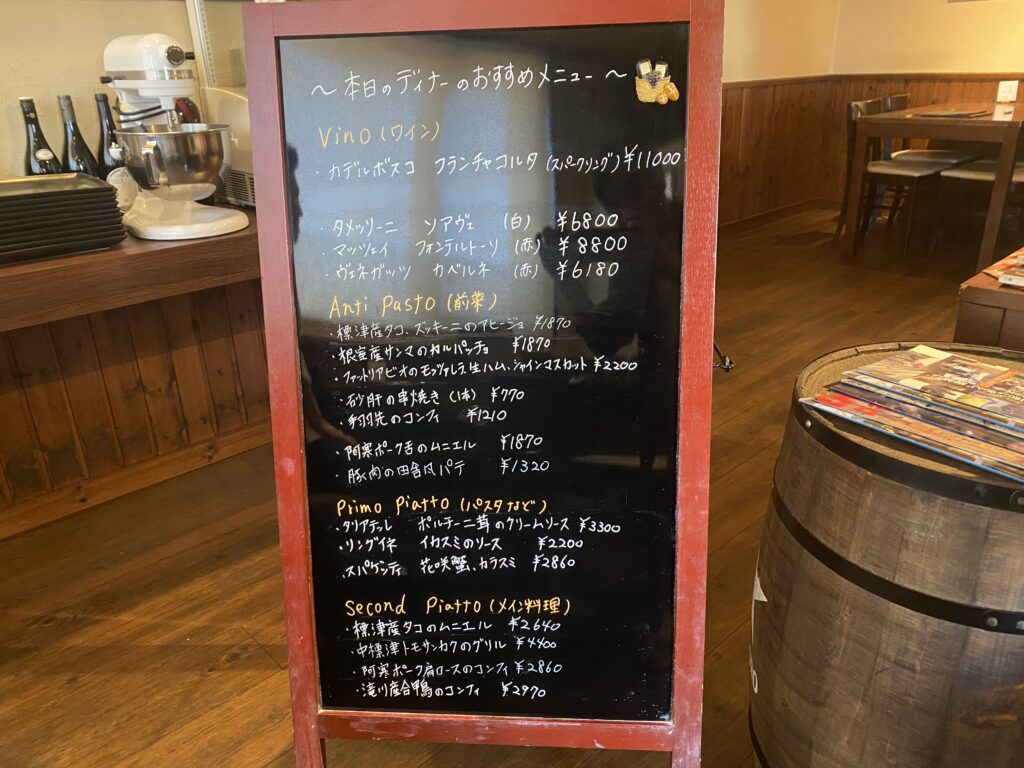 〜本日のディナーのおすすめメニュー〜
Vino(ワイン)
・カデルボスコ フランチャコルタ(スパークリング)¥11000
・タメッリーニ ソアヴェ (白) ¥6800
・マッツェイ フォンテルトーリ (赤) ¥8800
・ヴェネガッツ カベルネ (赤) ¥6180
Anti Pasto(前菜)
・標津産タコ、ズッキーニのアヒージョ ¥1870
・根室産サンマのカルパッチョ ¥1870
・ファットリアビオのモッツァレラ、生ハム、シャインマスカット ¥2200
・砂肝の串焼き(1本) ¥770
・手羽先のコンフィ ¥1210
・阿寒ポーク舌のムニエル ¥1870
・豚肉の田舎風パテ ¥1320
Primo Piatto(パスタなど)
・タリアテッレ ポルチーニ茸のクリームソース ¥3300
・リングイネ イカスミのソース ¥2200
・スパゲッティ 花咲蟹、カラスミ ¥2860
Second Piatto(メイン料理)
・標津産タコのムニエル ¥2640
・中標津トモサンカクのグリル ¥4400
・阿寒ポーク肩ロースのコンフィ ¥2860
・滝川産合鴨のコンフィ ¥2970